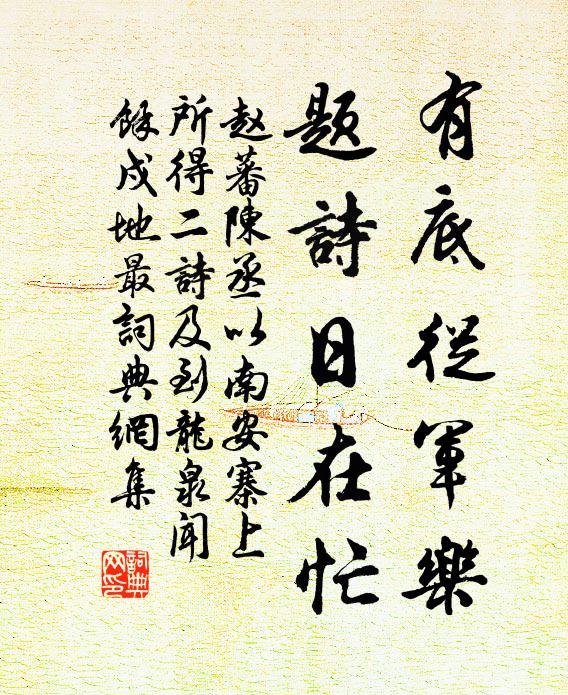 有底從軍樂
題詩日在忙
赵蕃陳丞以南安寨上
所得二詩及到龍泉闻
餘戍地最詞典網集
詞典
网印